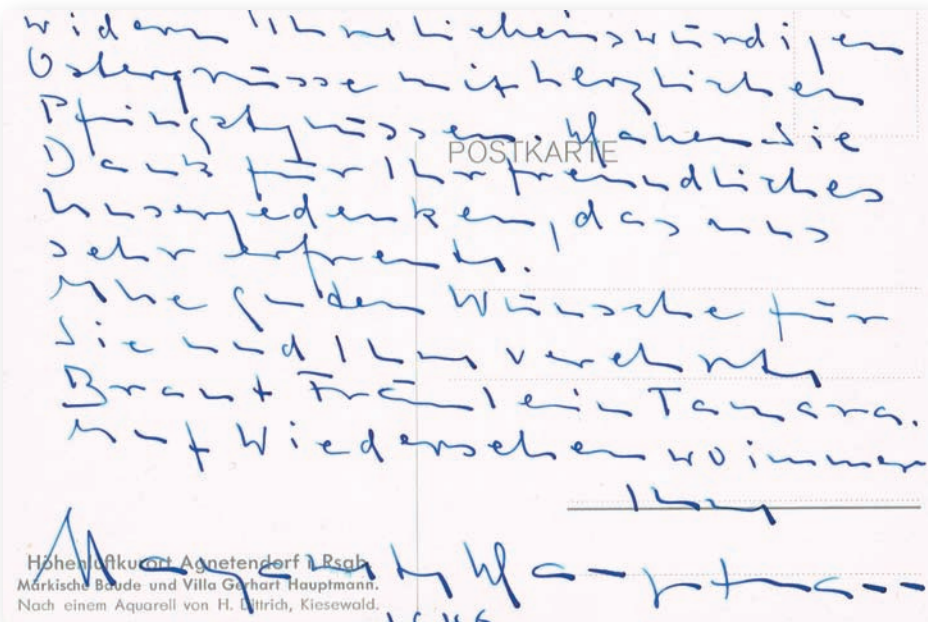 widern Ihre liebenswürdigen
Ostergrüsse mit herzlichen
Pfingstgrüssen. Haben Sie
POSTKARTE
Dank für Ihr freundliches
Unsergedenken, das uns
sehr erfreute.
Alle guten Wünsche für
Sie und Ihre verehrte
Braut Fräulein Tamara.
Auf Wiedersehen wo immer
Ihre
Margarete Hauptmann
Höhenluftkurort Agnetendorf i. Rsgb.
Märkische Baude und Villa Gerhart Hauptmann.
Nach einem Aquarell von H. Dittrich, Kiesewald.